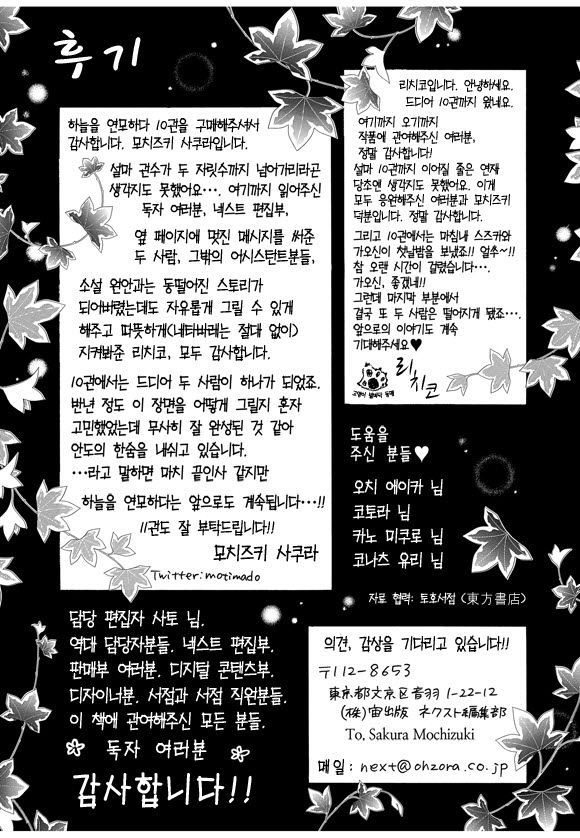 후기
하늘을 연모하다 10권을 구매해주셔서
감사합니다. 모치즈키 사쿠라입니다.
설마 권수가 두 자릿수까지 넘어가리라곤
생각지도 못했어요···. 여기까지 읽어주신
독자 여러분, 넥스트 편집부,
옆 페이지에 멋진 메시지를 써준
두 사람, 그밖의 어시스턴트분들,
소설 원안과는 동떨어진 스토리가
되어버렸는데도 자유롭게 그릴 수 있게
해주고 따뜻하게(네타바레는 절대 없이)
지켜봐준 리치코, 모두 감사합니다.
10권에서는 드디어 두 사람이 하나가 되었죠.
반년 정도 이 장면을 어떻게 그릴지 혼자
고민했었는데 무사히 잘 완성된 것 같아
안도의 한숨을 내쉬고 있습니다.
···라고 말하면 마치 끝인사 같지만
하늘을 연모하다는 앞으로도 계속됩니다···!!
11권도 잘 부탁드립니다!!
모치즈키 사쿠라
Twitter:motimado
리치코입니다. 안녕하세요.
드디어 10권까지 왔네요.
여기까지 오기까지
작품에 관여해주신 여러분,
정말 감사합니다!
설마 10권까지 이어질 줄은 연재
당초엔 생각지도 못했어요. 이게
모두 응원해주신 여러분과 모치즈키
덕분입니다. 정말 감사합니다.
그리고 10권에서는 마침내 스즈카와
가오신이 첫날밤을 보냈죠!! 얼추~!!
참 오랜 시간이 걸렸습니다···.
가오신, 좋겠네!!
그런데 마지막 부분에서
결국 또 두 사람은 떨어지게 됐죠···.
앞으로의 이야기도 계속
기대해주세요♥
리치코
도움을
주신 분들♥
오치 에이카 님
코토라 님
카노 미쿠로 님
코나츠 유리 님
자료 협력: 토호서점 (東方書店)
담당 편집자 사토 님.
역대 담당자분들. 넥스트 편집부.
판매부 여러분. 디지털 콘텐츠부.
디자이너분. 서점과 서점 직원분들.
이 책에 관여해주신 모든 분들.
독자 여러분
감사합니다!!
의견, 감상을 기다리고 있습니다!!
〒112-8653
東京都文京区音羽 1-22-12
(株)宙出版 ネクスト編集部
To. Sakura Mochizuki
메일 : next@ohzora.co.jp